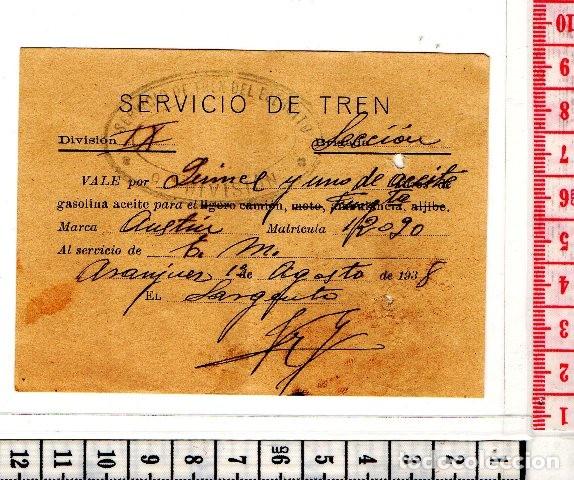 SERVICIO DE TREN
División IX Sección
VALE por y uno de aceite
gasolina aceite para el ligero camión, moto, ambulancia, aljibe.
Marca Austin Matrícula 12090
Al servicio de E. M.
Aranjuez 12 de Agosto de 1938
EL Sargento
10
9
8
7
6
5
4
3
2
1
12 11 10 9 8 7 6 5 4 3 2 1
todocoleccion